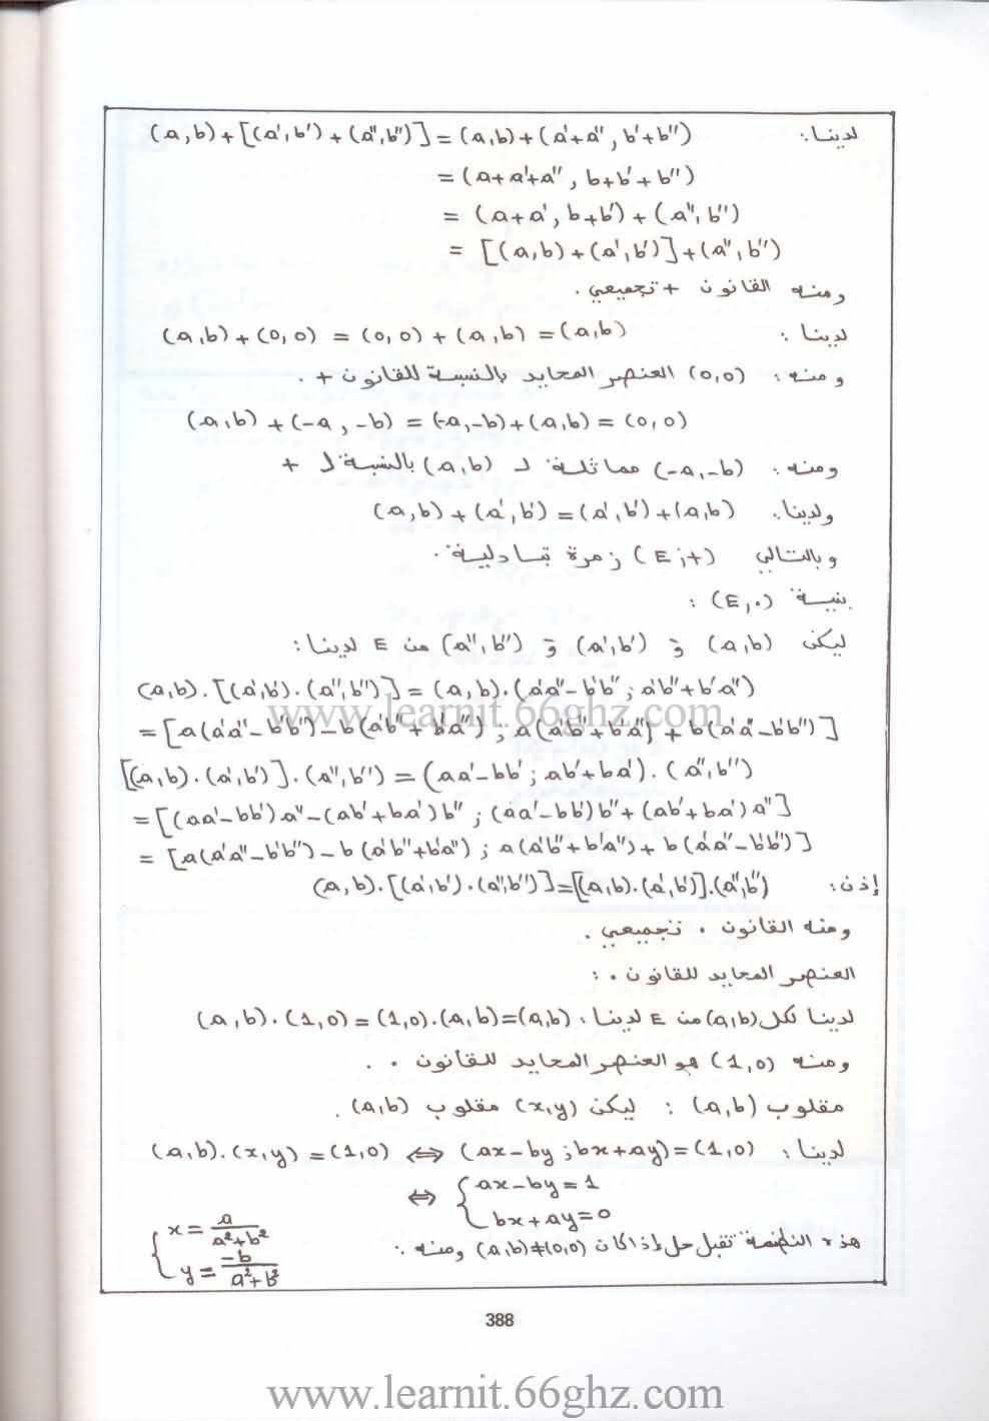 لدينا: (a,b)+[(a',b')+(a'',b'')]=(a,b)+(a'+a'', b'+b'')
=(a+a'+a'', b+b'+b'')
= (a+a', b+b')+(a'', b'')
= [(a,b)+(a',b')]+(a'',b'')
ومنه القانون + تجميعي.
لدينا: (a,b)+(0,0) = (0,0)+(a,b) =(a,b)
ومنه: (0,0) العنصر المحايد بالنسبة للقانون +.
(a,b)+(-a,-b) = (-a,-b)+(a,b) = (0,0)
ومنه: (-a,-b) مماثلة لـ (a,b) بالنسبة لـ +
ولدينا: (a,b)+(a',b')=(a',b')+(a,b)
وبالتالي (E;+) زمرة تبادلية.
بنية (E,.) :
ليكن (a,b) و (a',b') و (a'',b'') من E لدينا:
(a,b).[(a',b').(a'',b'')] = (a,b).(a'a''-b'b''; a'b''+b'a'')
=[a(a'a''-b'b'')-b(a'b''+b'a''); a(a'b''+b'a'')+b(a'a''-b'b'')]
[(a,b).(a',b')].(a'',b'')=(aa'-bb'; ab'+ba').(a'',b'')
=[(aa'-bb')a''-(ab'+ba')b''; (aa'-bb')b''+(ab'+ba')a'']
= [a(a'a''-b'b'')-b(a'b''+b'a''); a(a'b''+b'a'')+b(a'a''-b'b')]
إذن: (a,b).[(a',b').(a'',b'')]=[(a,b).(a',b')].(a'',b'')
ومنه القانون . تجميعي.
العنصر المحايد للقانون . :
لدينا لكل (a,b) من E لدينا: (a,b).(1,0)=(1,0).(a,b)=(a,b)
ومنه (1,0) هو العنصر المحايد للقانون . .
مقلوب (a,b) : ليكن (x,y) مقلوب (a,b).
لدينا: (a,b).(x,y)=(1,0) ⇔ (ax-by;bx+ay)=(1,0)
⇔ { ax-by=1
bx+ay=0
هذه النظمة تقبل حل إذا كان (a,b)≠(0,0) ومنه: { x = a/(a²+b²)
y = -b/(a²+b²)
388
www.learnit.66ghz.com
www.learnit.66ghz.com